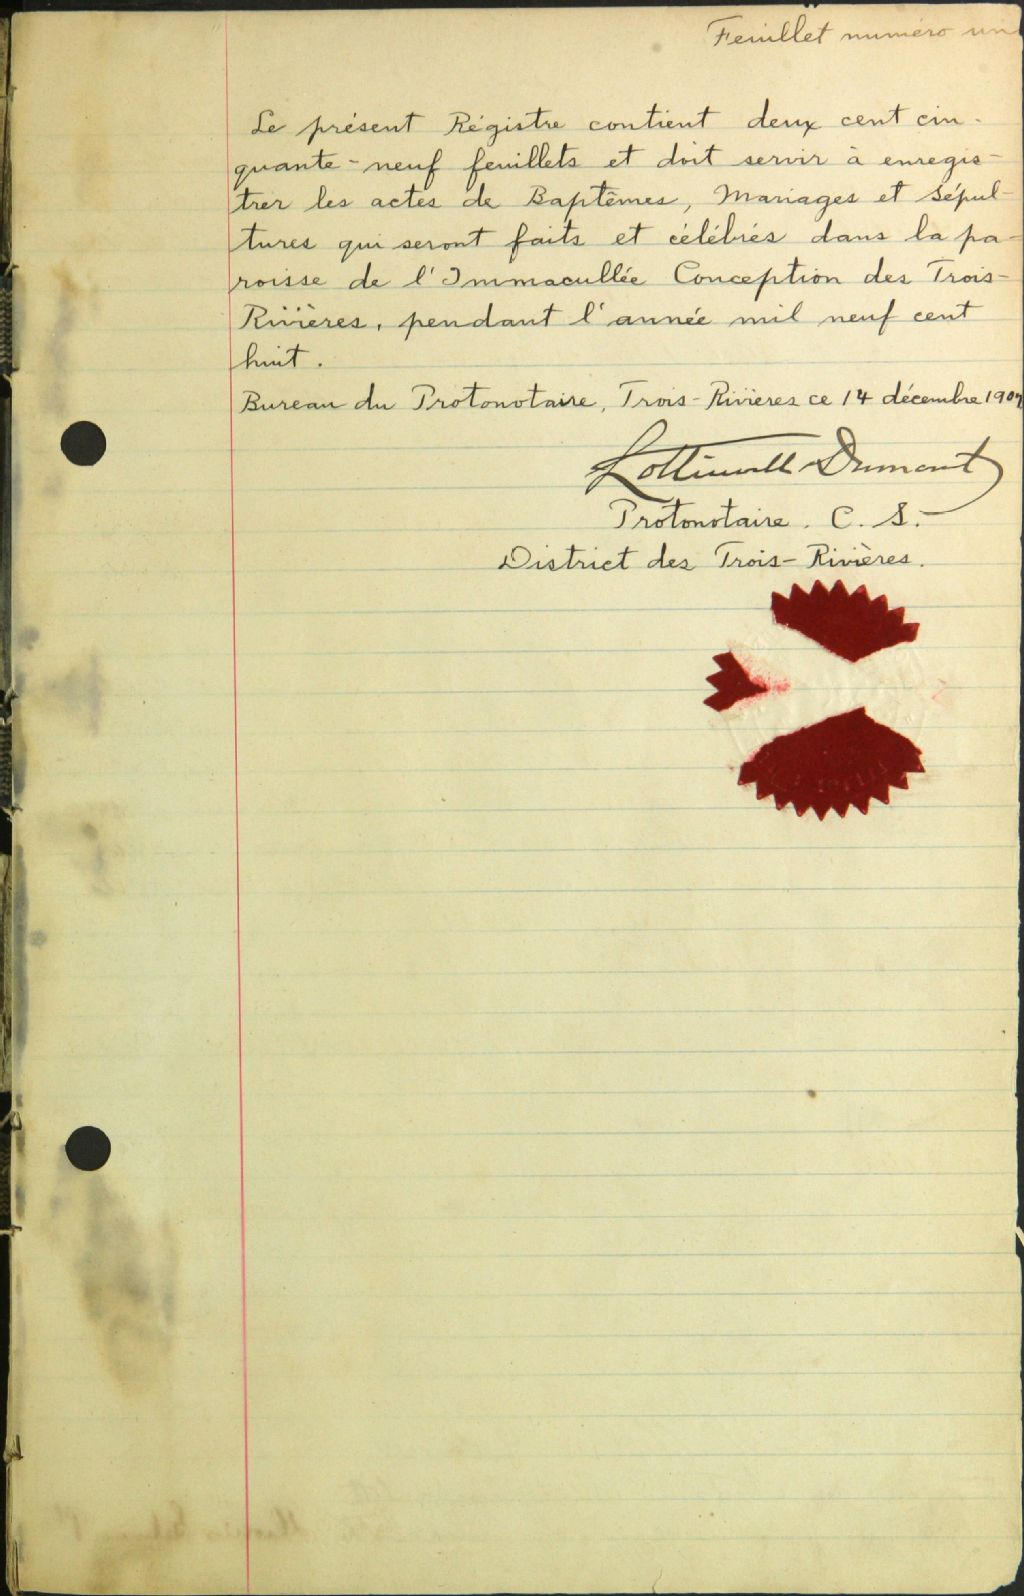 Feuillet numéro un
Le présent Régistre contient deux cent cin-
quante-neuf feuillets et doit servir à enregis-
trer les actes de Baptêmes, Mariages et Sépul-
tures qui seront faits et célébrés dans la pa-
roisse de l'Immacullée Conception des Trois-
Rivières, pendant l'année mil neuf cent
huit.
Bureau du Protonotaire, Trois-Rivières ce 14 décembre 1907
Lottinville Dumont
Protonotaire. C. S.
District des Trois-Rivières.